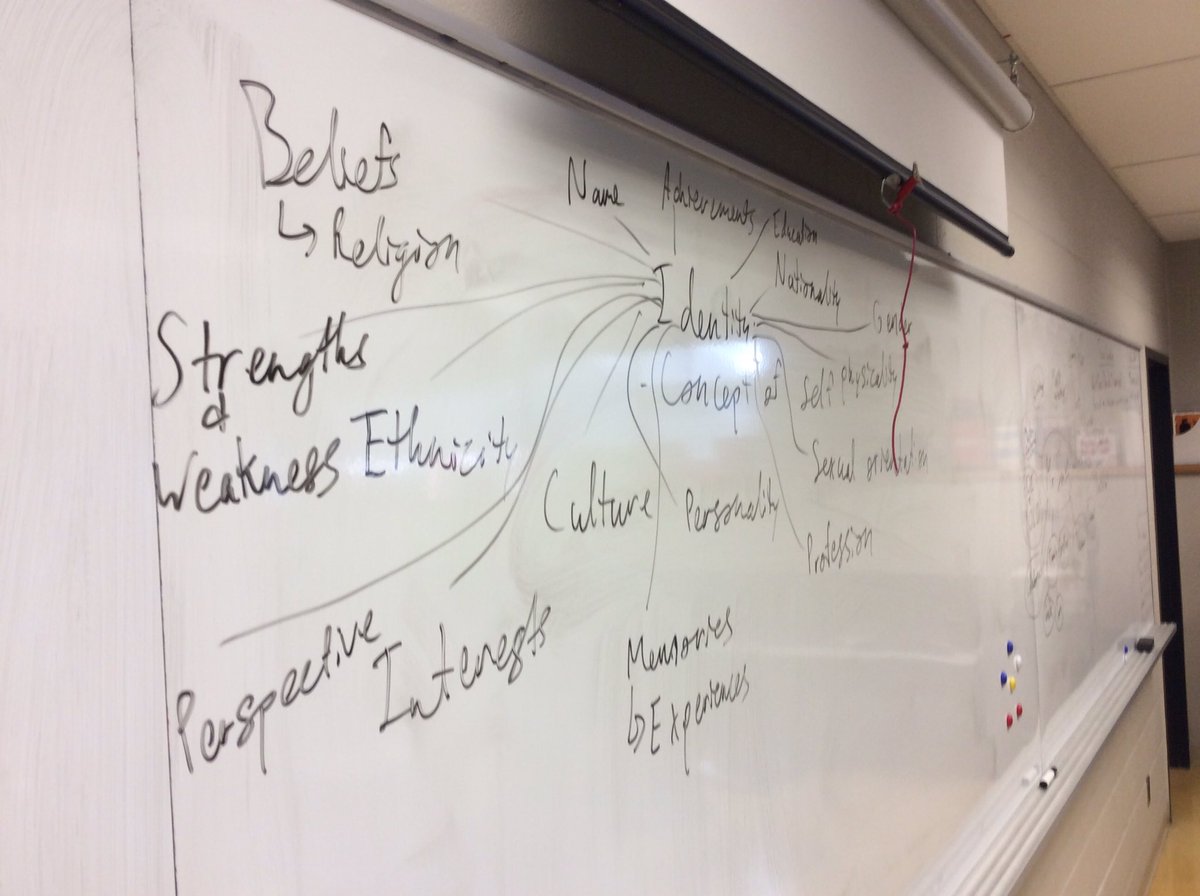 Beliefs
↳ Religion
Name
Achievements
Education
Nationality
Gender
Identity:
- Concept of Self
physicality
Strengths
&
Weakness
Ethnicity
Sexual orientation
Culture
Personality
Profession
Perspective
Interests
Memories
↳ Experiences